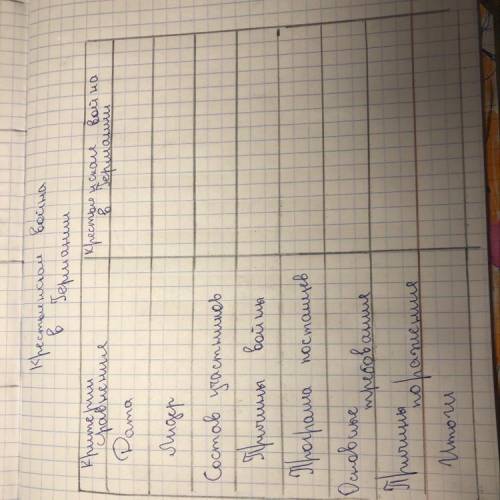 Крестьянская война
в Германии
Критерии
сравнения
Крестьянская война
в Германии
Дата
Лидер
Состав участников
Причины войны
Програма повстанцев
Основные
требования
Причины
поражения
Итоги